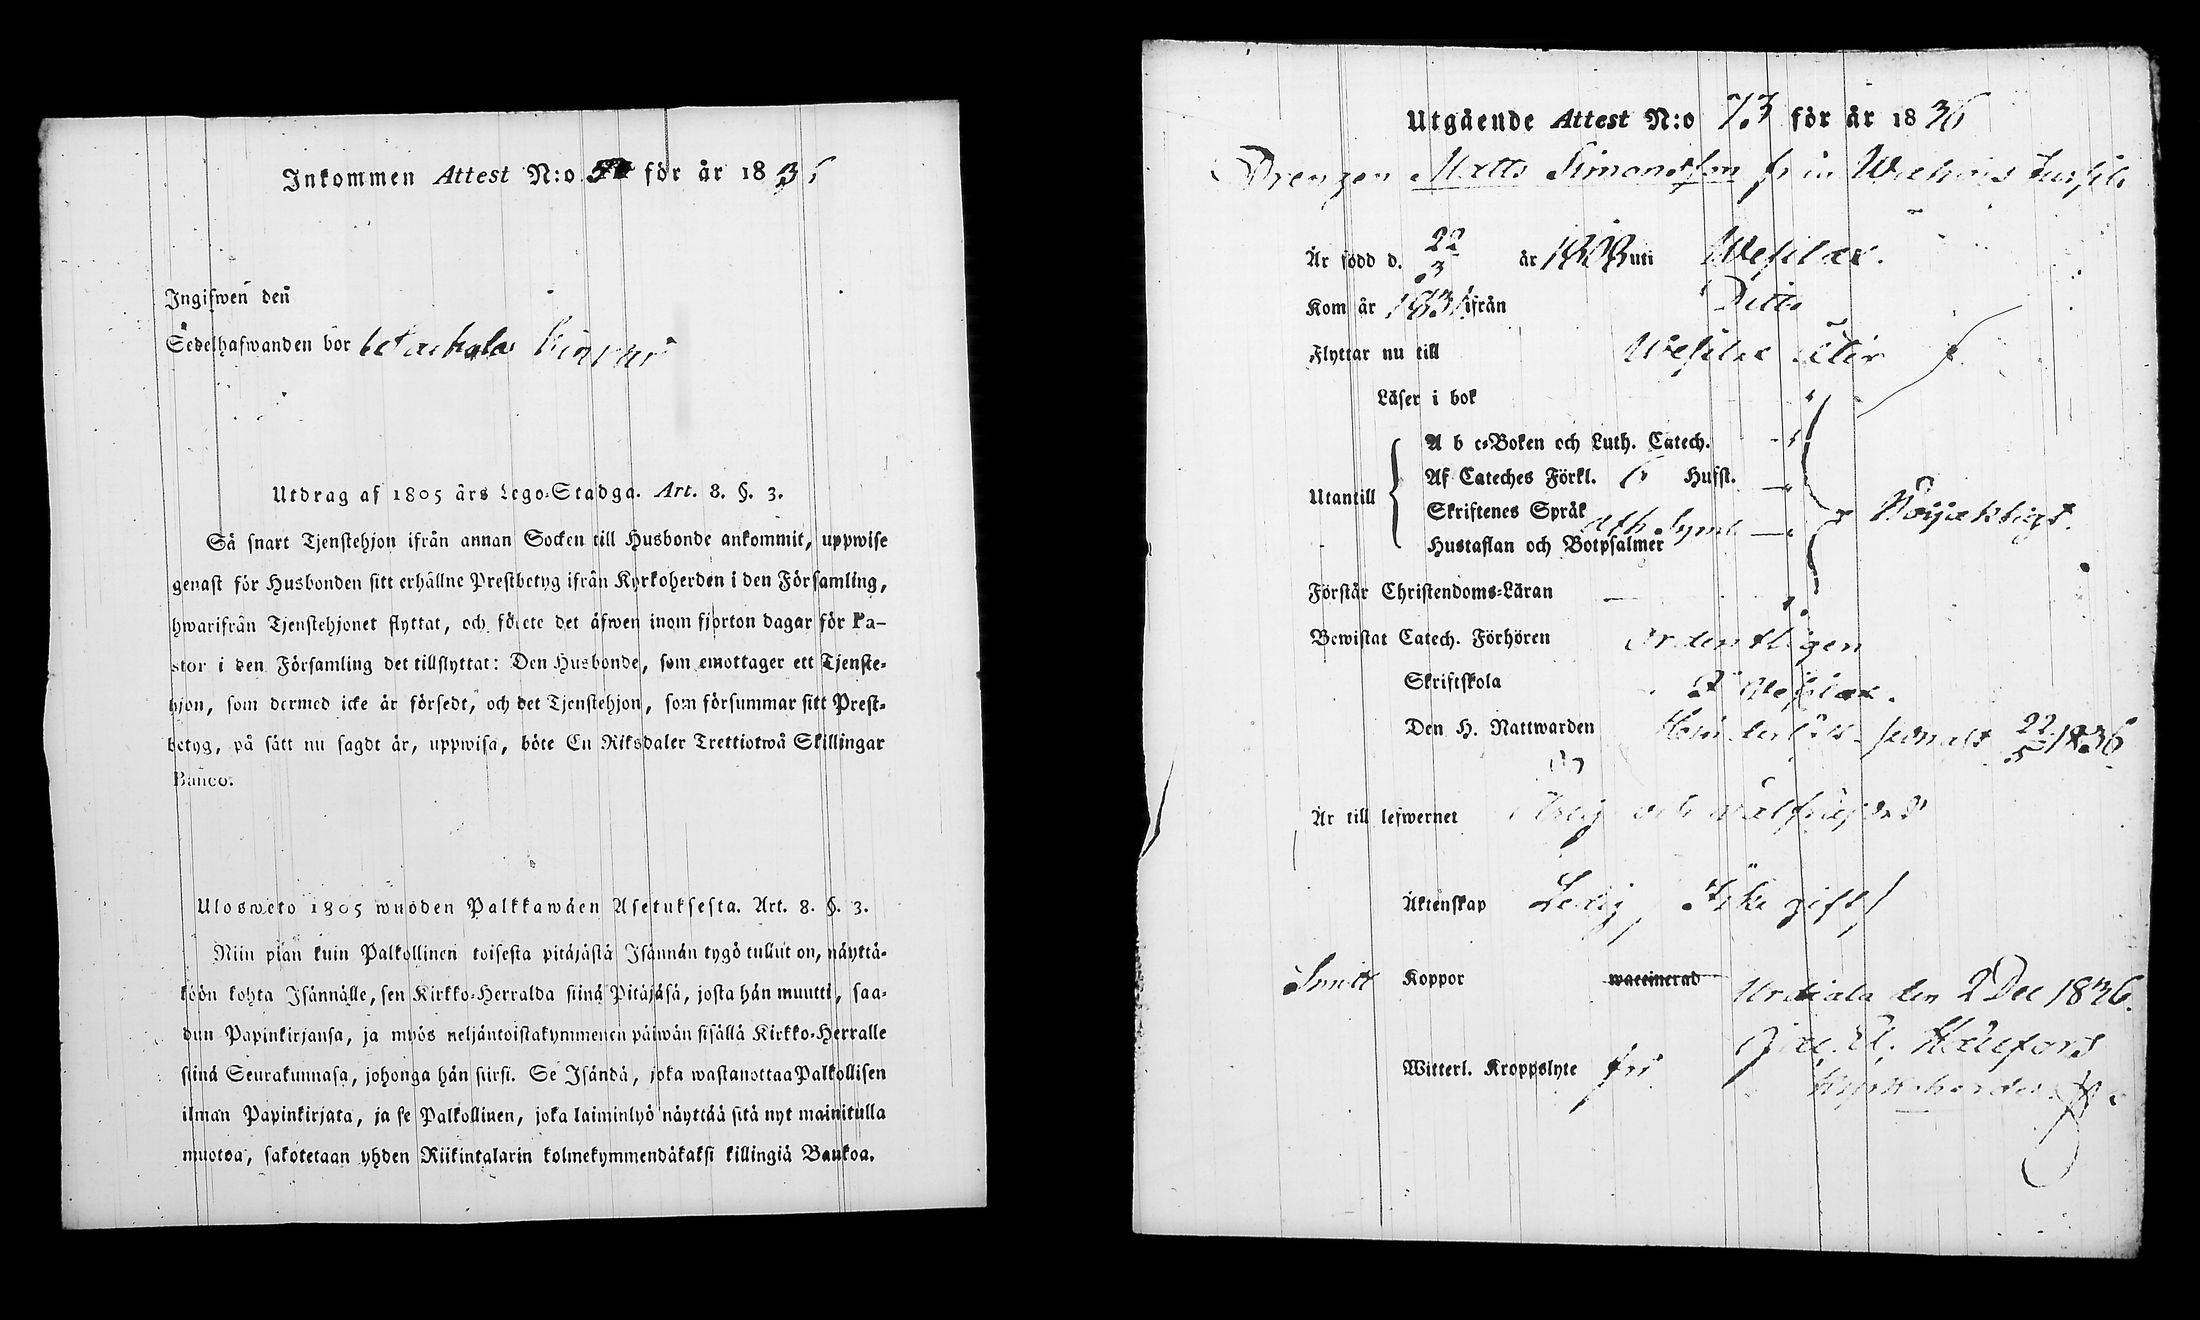 Inkommen Attest N:o för år 1836
Ingifwen den
Sedelhafwanden bor
Utdrag af 1805 års Lego-Stadga. Art. 8. §. 3.
Så snart Tjenstehjon ifrån annan Socken till Husbonde ankommit, uppwise
genast för Husbonden sitt erhållne Prestbetyg ifrån Kyrkoherden i den Församling,
hwarifrån Tjenstehjonet flyttat, och förete det äfwen inom fjorton dagar för Pa-
stor i den Församling det tillflyttat: Den Husbonde, som emottager ett Tjenste-
hjon, som dermed icke är försedt, och det Tjenstehjon, som försummar sitt Prest-
betyg, på sätt nu sagdt är, uppwisa, böte En Riksdaler Trettiotwå Skillingar
Banco.
Ulosweto 1805 wuoden Palkkawäen Asetuksesta. Art. 8. §. 3.
Niin pian kuin Palkollinen toisesta pitäjästä Isännän tygö tullut on, näyttä-
köön kohta Isännälle, sen Kirkko-Herralda siinä Pitäjäsä, josta hän muutti, saa-
dun Papinkirjansa, ja myös neljäntoistakymmenen päiwän sisällä Kirkko-Herralle
siinä Seurakunnasa, johonga hän siirsi. Se Isändä, joka wastanottaa Palkollisen
ilman Papinkirjata, ja se Palkollinen, joka laiminlyö näyttää sitä nyt mainitulla
muotoa, sakotetaan yhden Riikintalarin kolmekymmendäkaksi killingiä Bankoa.
Utgående Attest N:o 73 för år 1836
Drengen Matts Simonsson från
Är född d. 22/3 år 1808 uti Wesilax.
Kom år 1831 ifrån Ditto
Flyttar nu till Wesilax åter
Läser i bok
A b c-Boken och Luth. Catech.
Utantill Af Cateches Förkl. 6 Hufst.
Skriftenes Språk Ath. Symb.
Hustaflan och Botpsalmer
Förstår Christendoms-Läran
Bewistat Catech. Förhören ordentligen
Skriftskola i Wesilax.
Den H. Nattwarden senast 22/5 1836
Är till lefwernet Ärlig och wälfräjdad
Äktenskap Ledig, Icke gift
Smitt Koppor waccinerad Urdiala den 2 Dec 1836.
Witterl. Kroppslyte fri
Hällfors
Kyrkoherde